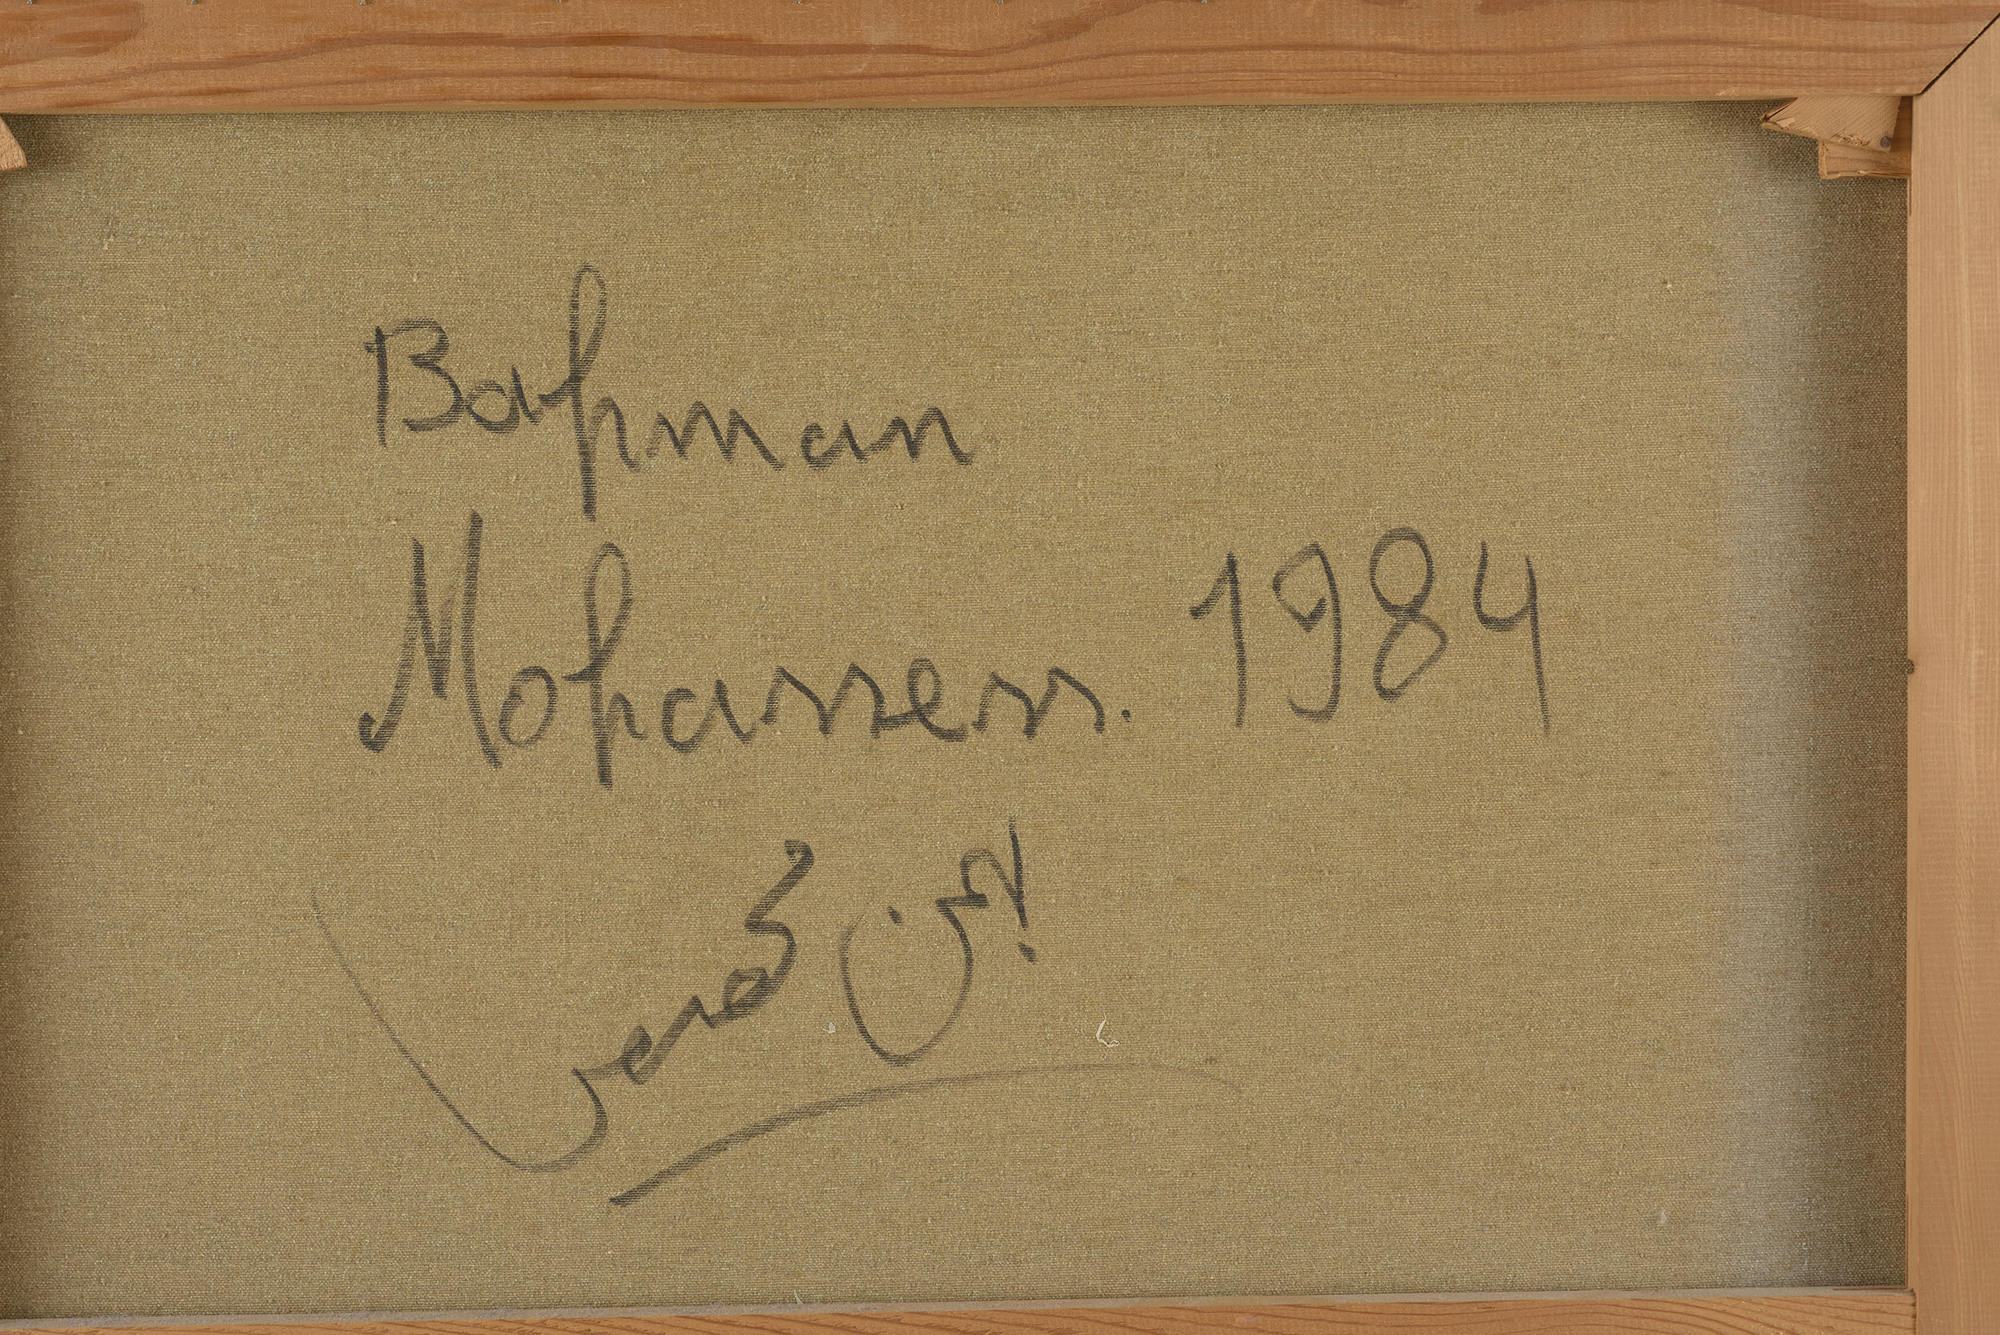 Bahman
Mohassess. 1984
بهمن محصص